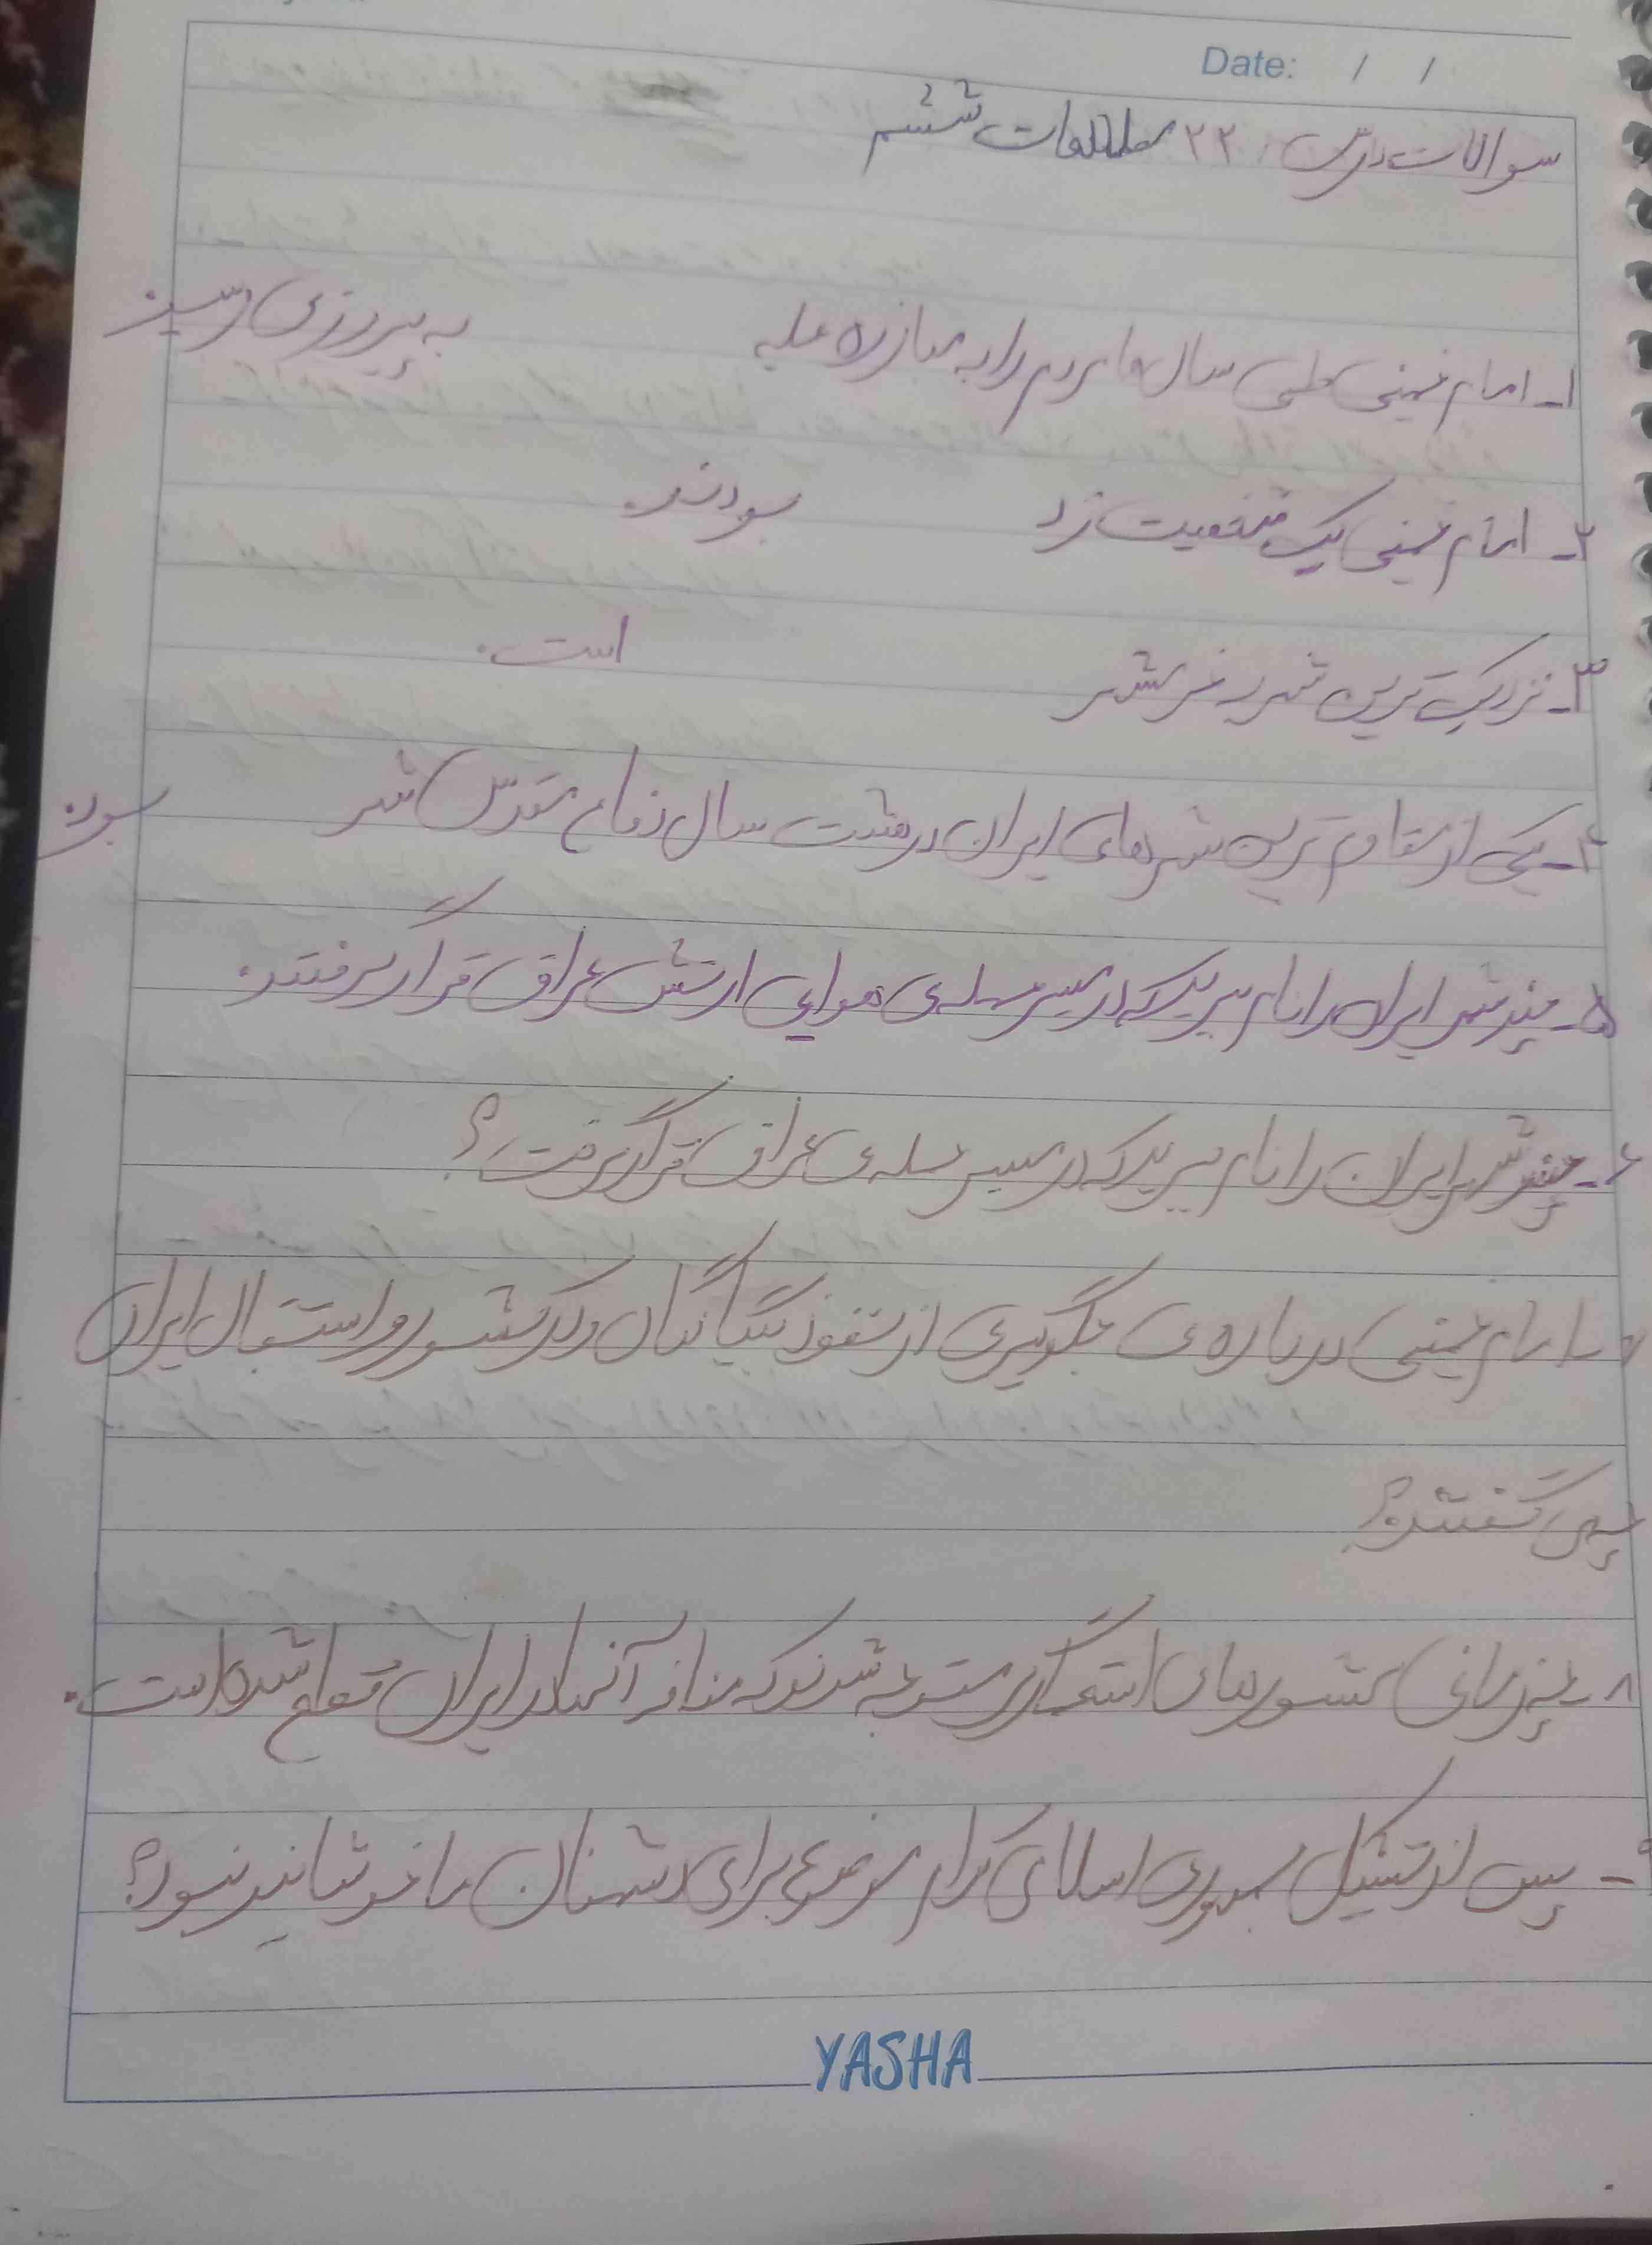 Date: / /
سوالات درس ۲۲ مطالعات ششم
۱- امام خمینی طی سال ها مردم را به مبارزه علیه به پیروزی رسید
۲- امام خمینی یک شخصیت زد بودند.
۳- نزدیک ترین شهر به خرمشهر است.
۴- یکی از مقاوم ترین شهرهای ایران در هشت سال دفاع مقدس شهر بود.
۵- چند شهر ایران را نام ببرید که در مسیر حمله ی هوایی ارتش عراق قرار گرفتند.
۶- چند شهر ایران را نام ببرید که در مسیر حمله ی عراق قرار گرفت؟
۷- امام خمینی درباره ی جلوگیری از نفوذ بیگانگان در کشور و استقلال ایران
چی گفتند؟
۸- چه زمانی کشورهای استعمارگر متوجه شدند که منافع آنها در ایران قطع شده است.
۹- پس از تشکیل جمهوری اسلامی کدام موضوع برای دشمنان ما خوشایند نبود؟
YASHA